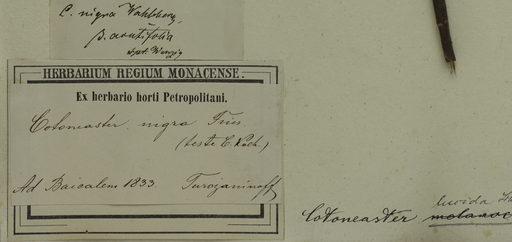 C. nigra Wahlberg.
β. acutifolia
HERBARIUM REGIUM MONACENSE.
Ex herbario horti Petropolitani.
Cotoneaster nigra Fries
(teste C. Koch.)
Ad Baicalem 1833. Turczaninoff
lucida
Cotoneaster